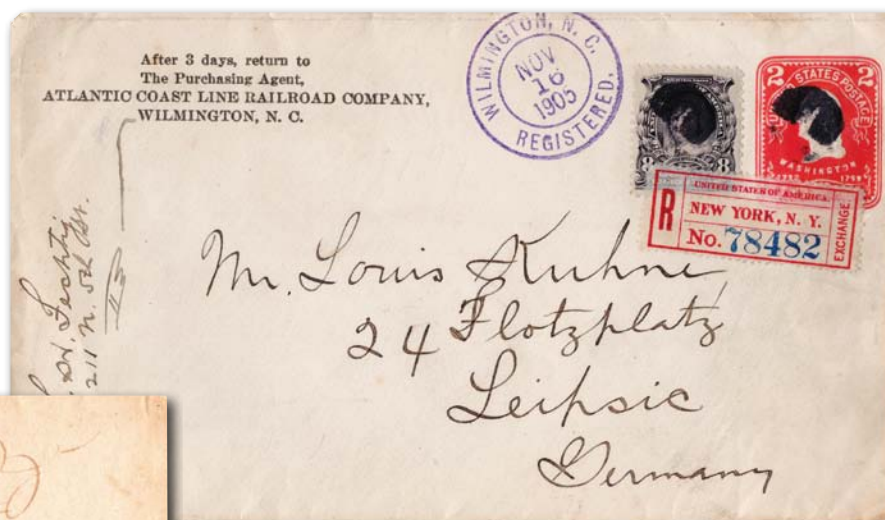 After 3 days, return to
The Purchasing Agent,
ATLANTIC COAST LINE RAILROAD COMPANY,
WILMINGTON, N. C.
WILMINGTON, N. C.
NOV
16
1905
REGISTERED.
8
2 2
STATES POSTAGE
WASHINGTON
UNITED STATES OF AMERICA.
R
NEW YORK, N. Y.
No. 78482
EXCHANGE
Mr. Louis Kuhne
24 Flotzplatz
Leipsic
Germany
211 N. 5th Str.